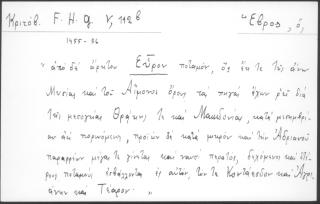 Κριτόβ. F. H. G V, 112β "Εβρος, ὁ,
1455-56
" ἀπὸ δὲ ἄρκτου Εὗρον ποταμὸν, ὃς ἔκ τε τῆς ἄνω
Μυσίας καὶ τοῦ Αἵμονος ὄρους τὰς πηγὰς ἔχων ῥεῖ διὰ
τῆς μεσογείας Θρᾴκης τε καὶ Μακεδονίας, κατὰ μεσημβρί
αν ἀεὶ πορευόμενος, προϊὼν δὲ κατὰ μικρὸν καὶ τὴν Ἀδριανοῦ
παραρρέων μέγας τε γίνεται καὶ ναυσὶ περατὸς, δεχόμενος καὶ ἑτέ
ρους ποταμοὺς ἐσβάλλοντας ἐς αὐτὸν, τόν τε Κοντάδεσδον καὶ Ἀγρι
άνην καὶ Τέαρον. "